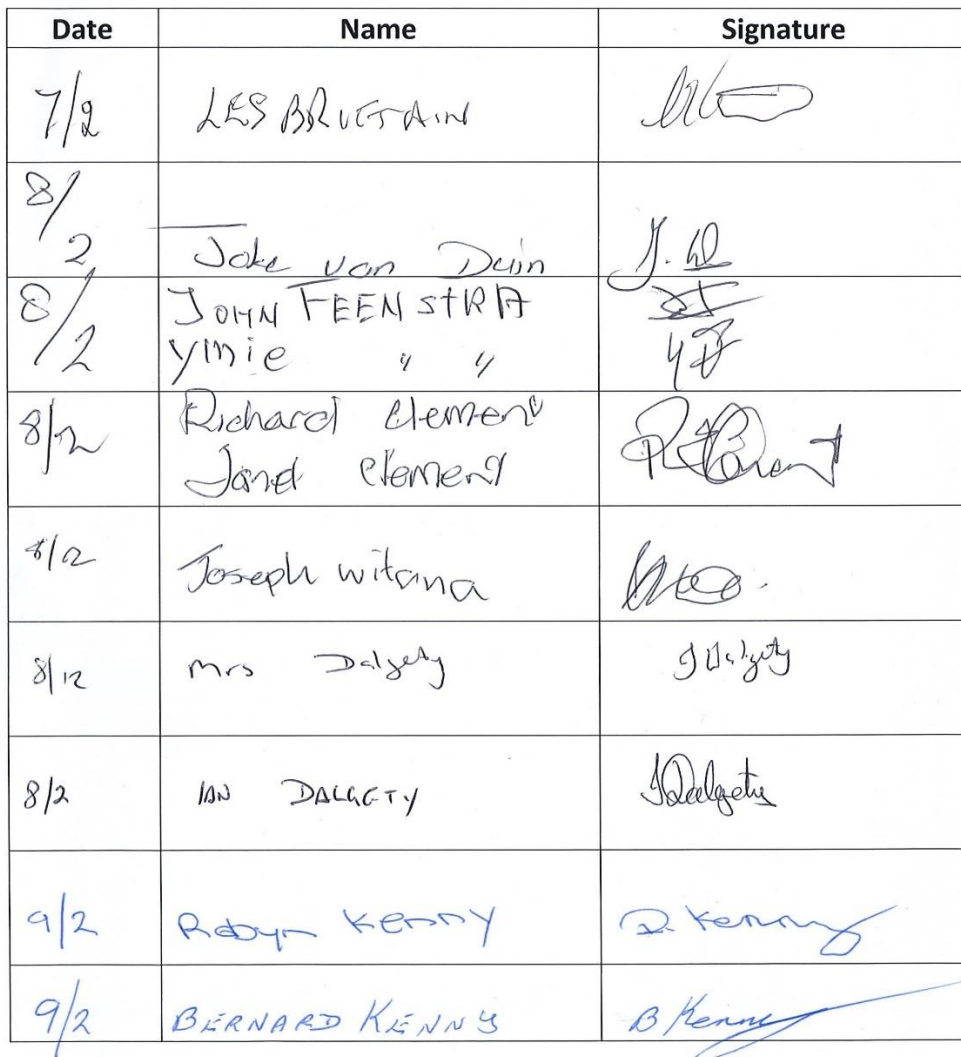 Date Name Signature
7/2 LES BRUETAIN
8/2 Joke van Duin J.
8/2 JOHN FEENSTRA
ymie " "
8/2 Richard Clement
Janet Clement
8/2 Joseph witana
8/12 Mrs Dalgety J Dalgety
8/2 IAN DALGETY I Dalgety
9/2 Robyn Kenny R. Kenny
9/2 BERNARD KENNY B Kenny